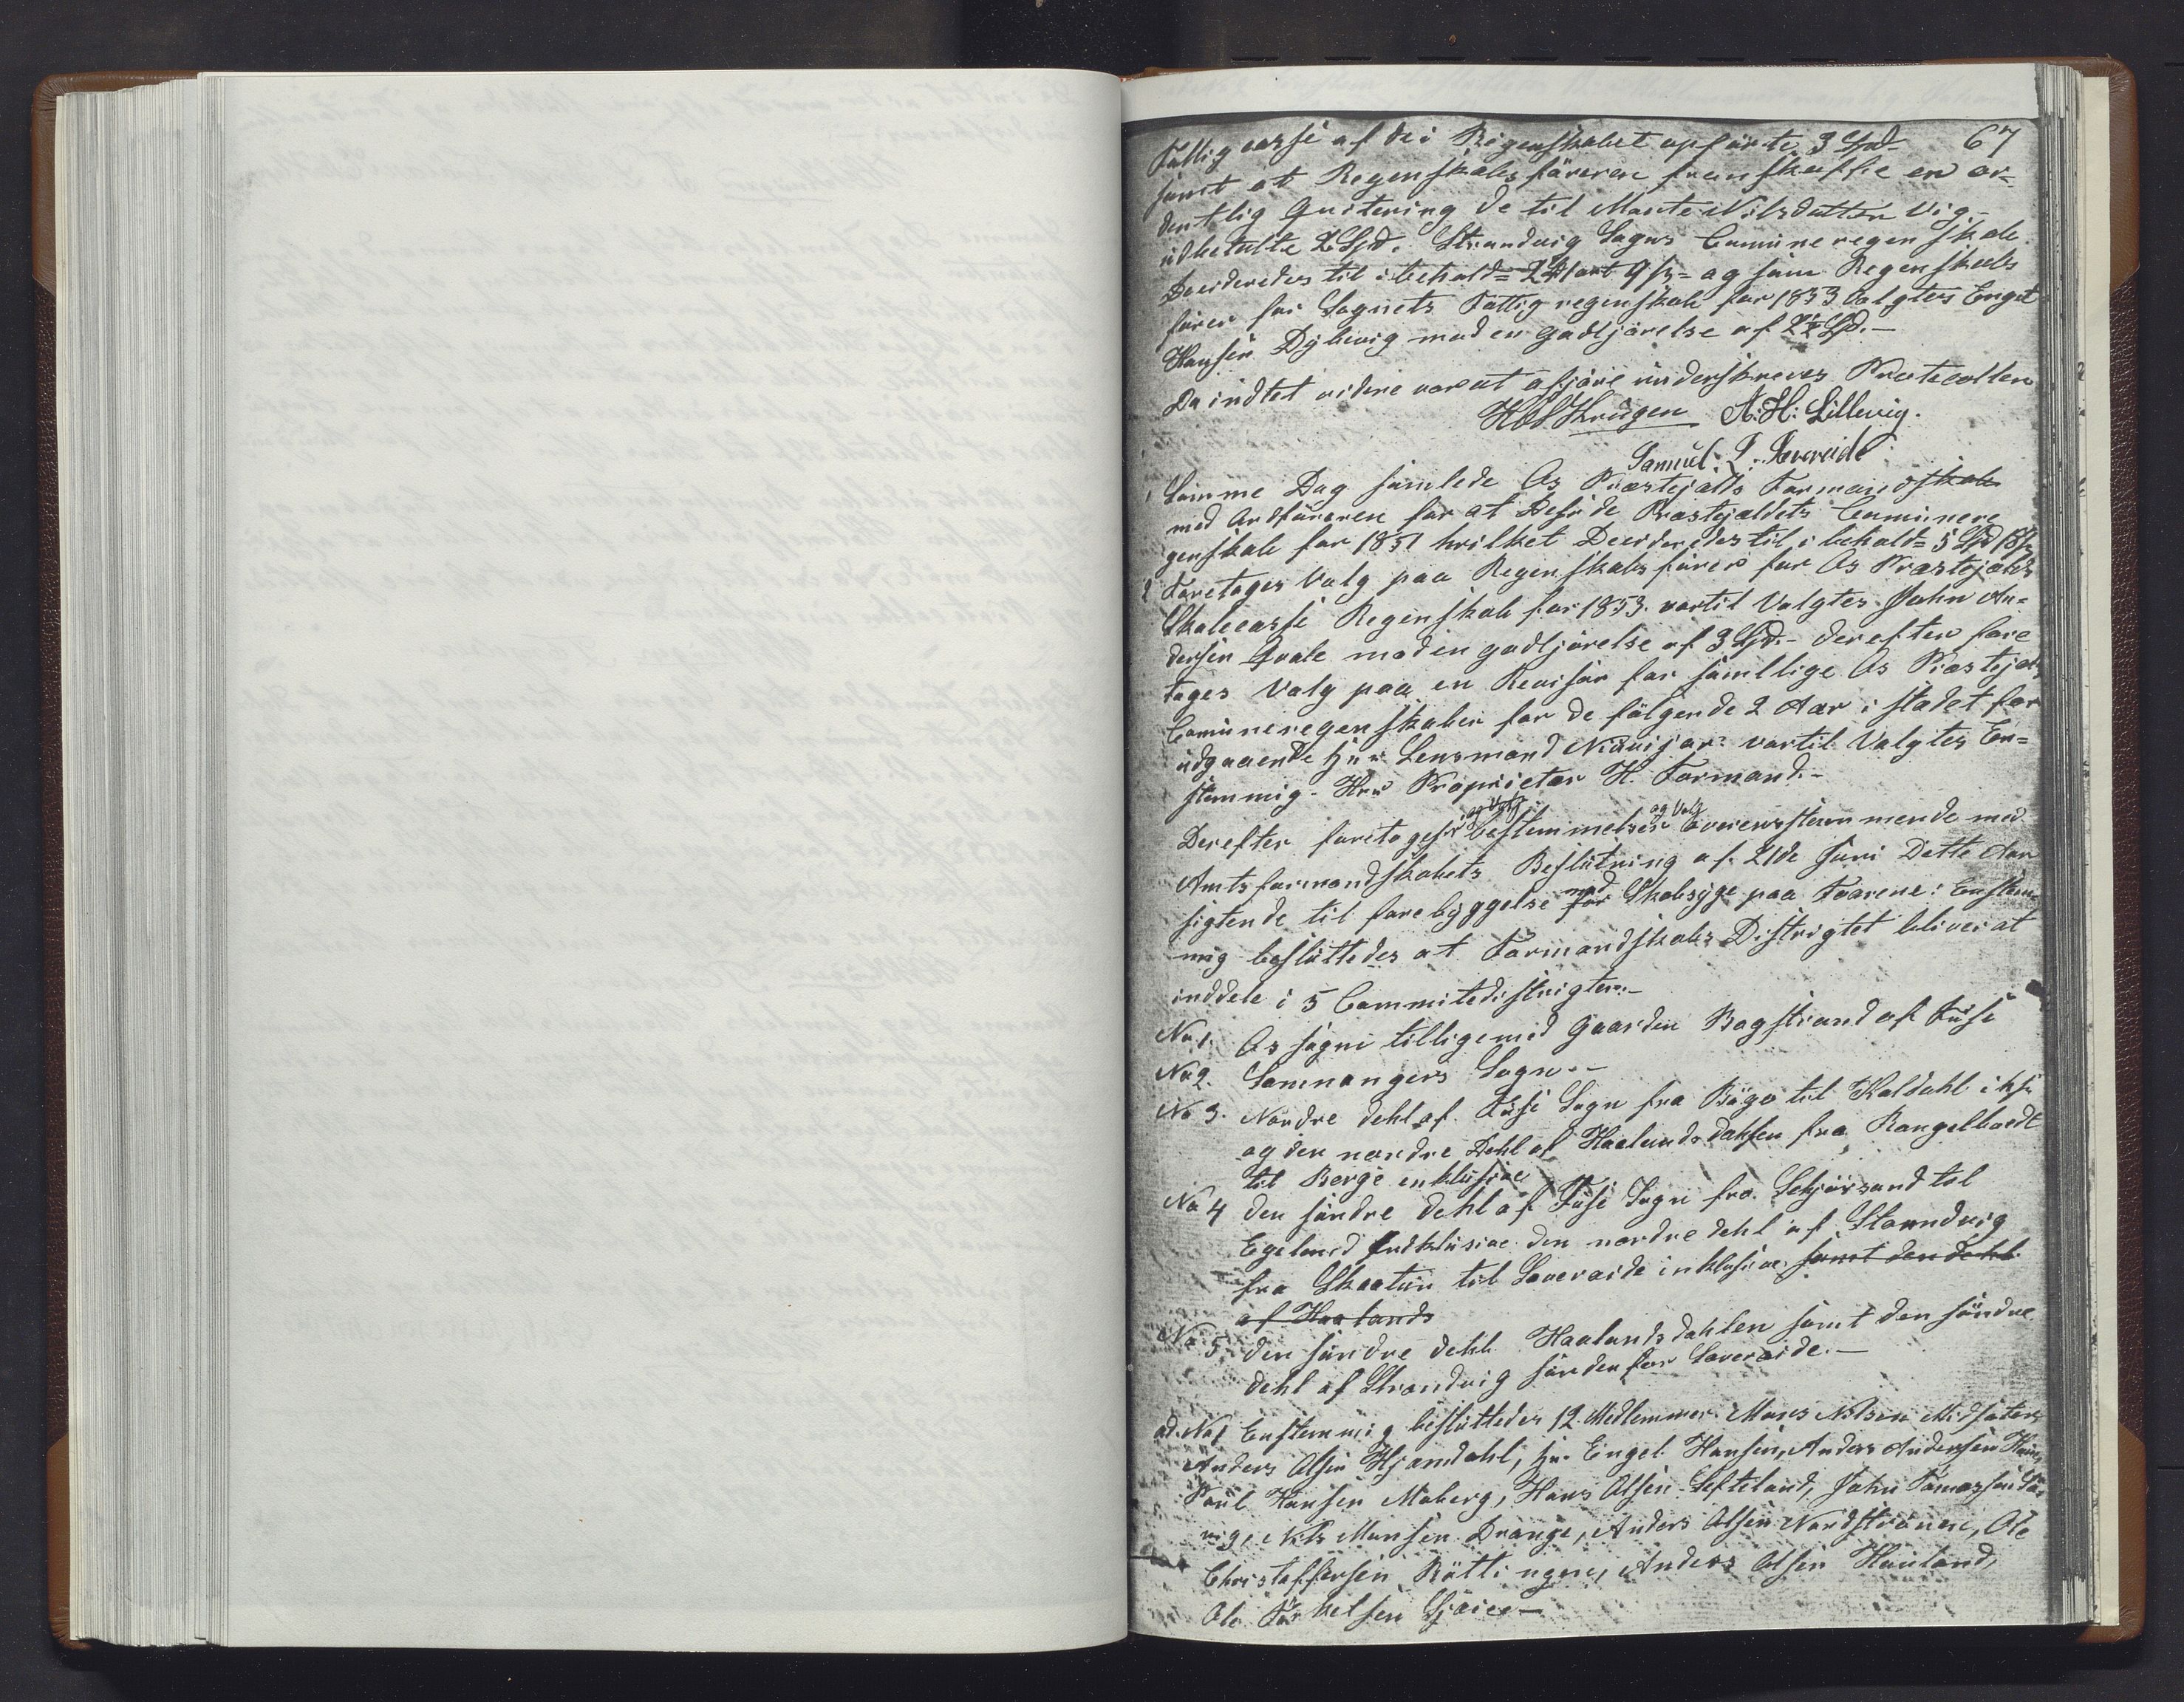 67
Fattigcasse af de i Regenskabet opførte 3 Spd
samt at Regenskabsføreren fremskaffe en or-
dentlig Quitering de til Marite Nilsdatter Vig
udbetalte 2 Spd. Strandvig Sogns Comuneregenskab
Desideredes til i behold = 2 Spd 1 ort 9 s = og som Regenskabs
fører for Sognets Fattigregenskab for 1853 Valgtes Engel
Hansen Dybevig mod en godtjørelse af 2½ Spd. -
Da indtet videre var at afjøre underskreves Protocollen
Krügen A. H. Lillevig.
Samuel Severeide
1 Samme Dag samlede Os Præstejælds Formandskab
med Ordføreren for at Reside Præstejældets Comunere
genskab for 1851 hvilket Desideredes til i behold = 5 Spd
2 Foretoges Valg paa Regenskabsfører for Os Præstejælds
Skolecasse Regenskab for 1853. vortil Valgtes John An=
dersen Qvale mod en godtjørelse af 3 Spd. - derefter fore
toges Valg paa en Revisor for samtlige Os Præstejælds
Comuneregenskaber for de følgende 2 Aar i stedet for
udgaaende Hr. Lensmand vortil Valgtes En=
stemmig - Herr Proprietær H. Formand. -
og Valg og Valg
Derefter foretoges bestemmelser overensstemmende med
Amtsformandskabets Beslutning af 21de Juni Dette Aar
sigtende til forebyggelse for mod Skabsyge paa Faarene: Enstem
mig besluttedes at Formandskabs Distrigtet bliver at
inddele i 5 Commitedistrigter. -
No 1. Os sogn tilligemed Gaarden Bogstrand af Fuse
No 2. Samnangers Sogn. -
No 3. Nordre dehl af Fuse Sogn fra Bøgo til Koldahl
og den nordre Dehl af Haalandsdahlen fra Rangelbordt
til Berge enklusive
No 4 den søndre dehl af Fuse Sogn fra Sekjørsand til
Egeland Indklusive den nordre dehl af Strandvig
fra Skaatun til Severeide inklusive samt den dehl
af Haalands
No 5. den søndre dehl Haalandsdahlen samt den søndre
dehl af Strandvig sønden for Severeide. -
ad. No 1 Enstemmig besluttedes 12 Medlemmer Mons Nilsen Midsæter
Anders Olsen Hjemdahl, Hr. Engel Hansen, Anders Andersen
Poul Hansen Moberg, Hans Olsen Lefteland, John Tomassen
vig, Nils Monsen Drange, Anders Olsen Nordstrønen, Ole
Christoffersen Røttingen, Anders Olsen Hauland,
Ole Torkelsen -